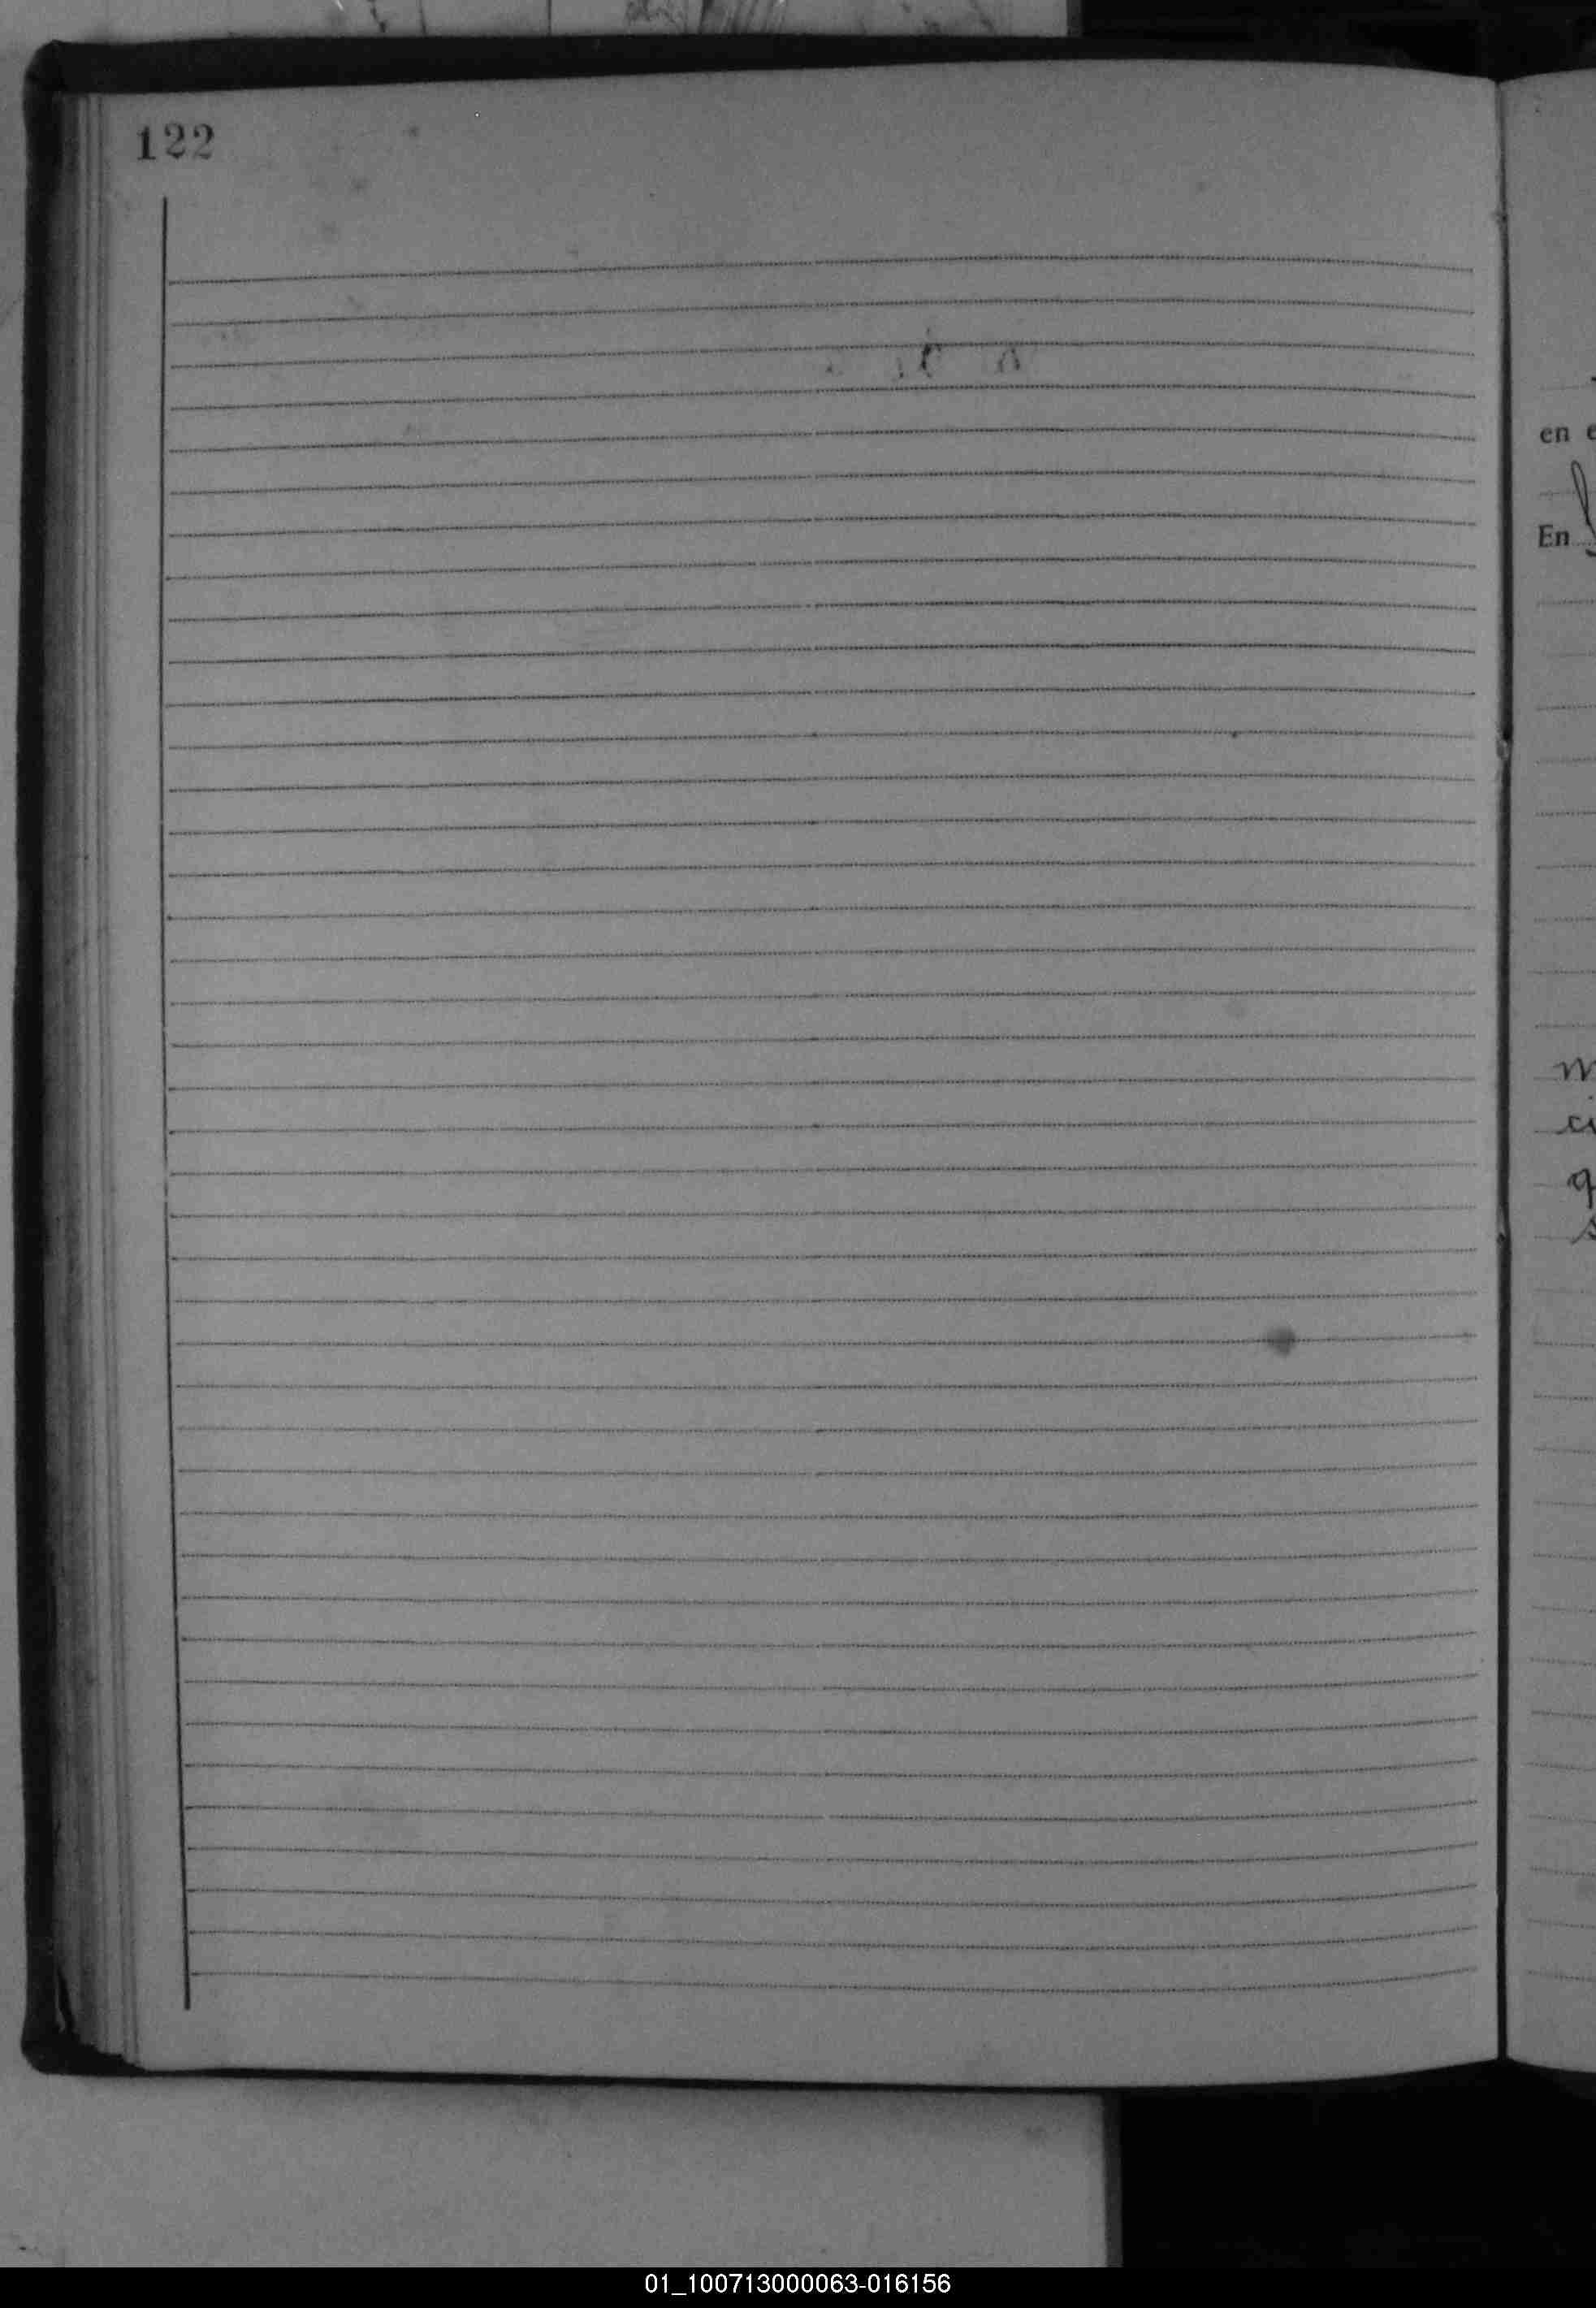 122
en e
En
m
ci
q
s
01_100713000063-016156